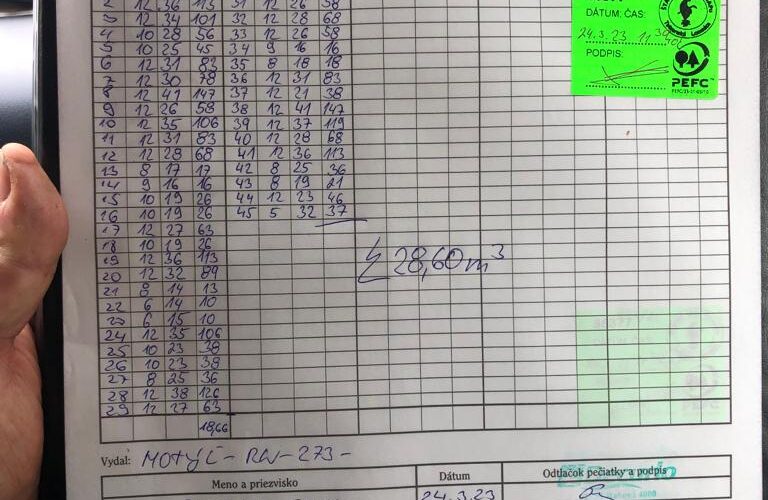 DÁTUM: ČAS:
24.3.23 11 39
PODPIS:
PEFC
2 12 36 113 31 12 26 58
3 12 34 101 32 12 28 68
4 10 28 56 33 12 26 58
5 10 25 45 34 9 16 16
6 12 31 83 35 8 18 18
7 12 30 78 36 12 31 83
8 12 41 147 37 12 21 38
9 12 26 58 38 12 41 147
10 12 35 106 39 12 37 119
11 12 31 83 40 12 28 68
12 12 28 68 41 12 36 113
13 8 17 17 42 8 25 36
14 9 16 16 43 8 19 21
15 10 19 26 44 12 23 46
16 10 19 26 45 5 32 37
17 12 27 63
18 10 19 26
19 12 36 113
20 12 32 89
21 8 14 13
22 6 14 10
23 6 15 10
24 12 35 106
25 10 23 38
26 10 23 38
27 8 25 36
28 12 38 126
29 12 27 63
18,66
Σ 28,60 m³
Vydal: MOTÝĽ - RV - 273 -
Meno a priezvisko Dátum Odtlačok pečiatky a podpis
24.3.23